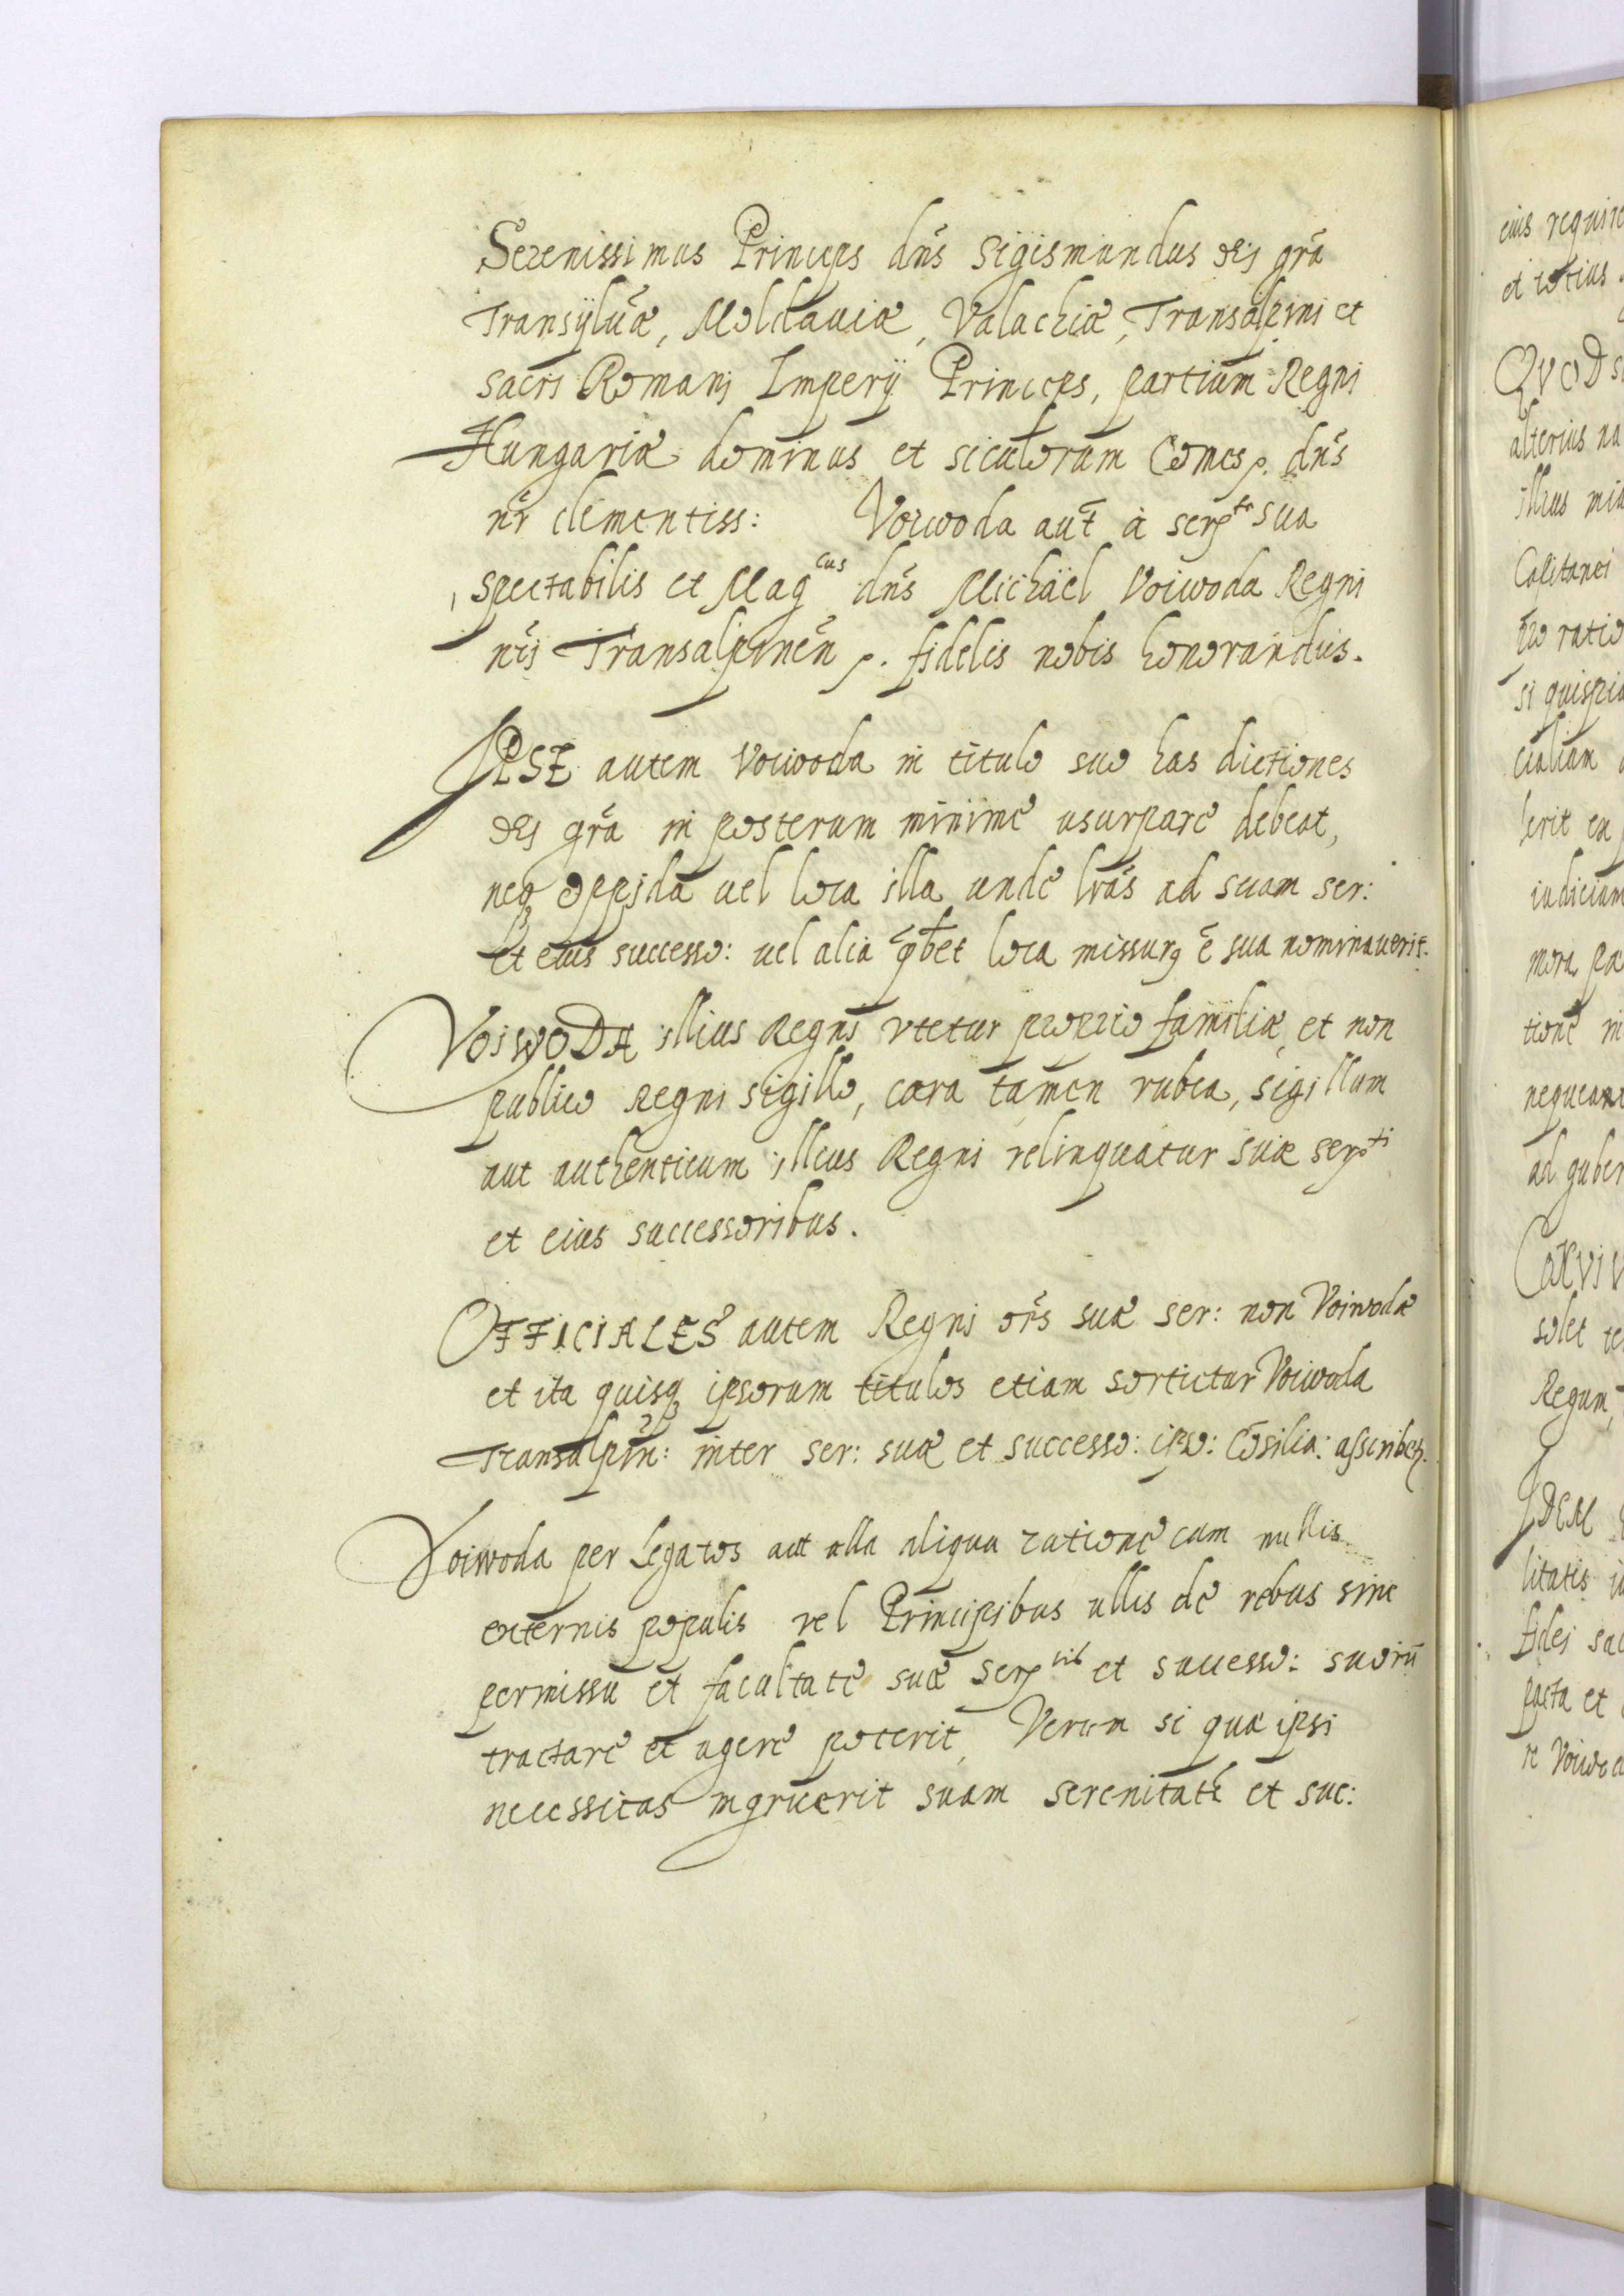 Serenissimus Princeps dn̄s Sigismundus dej grā
Transÿlūæ, Moldauiæ, Valachiæ, Transalpini et
sacri Romanj Imperÿ Princeps, partium Regni
Hungariæ dominus et siculorum Comes p. dn̄s
nr̄ clementiss: Voiwoda aut̄ à serᵗᵉ sua
spectabilis et Magᶜᵘˢ dn̄s Michäel Voiwoda Regni
nr̄j Transalpinēn p. fidelis nobis honorandus.
IPSE autem Voiwoda in titulo suo has dictiones
dej grā in posterum minimè usurpare debeat,
neqꝫ oppida uel loca illa unde lrās ad suam ser:
et eius successo: uel alia loca missurꝰ ē sua nominauerit.
VOIWODA illius Regni vtetur proprio familiæ, et non
publico Regni sigillo, cæra tamen rubea, sigillum
aut authenticum illius Regni relinquatur suæ serᵗⁱ
et eius successoribus.
OFFICIALES autem Regni or̄s suæ ser: non Voiwodæ
et ita quisqꝫ ipsorum titulos etiam sortietur Voiwoda
Transalpin: inter ser: suæ et successo: ipso: Cōsilia: asscribetꝛ.
Voiwoda per Legatos aut ulla aliqua ratione cum nullis
externis populis vel Principibus ullis de rebus sine
permissu et facultate suæ serᵗⁱˢ et successo: suorū
tractare et agere poterit, Verum si quæ ipsi
necessitas ingruerit suam serenitatē et suc:
eius requir
et totius
QVOD si
alterius na
illius mi
Capitanei
ratio
si quispia
cialium
lerit ea
iudicium
mora pæ
tione in
nequeant
ad guber
solet te
Regum,
IDEM
litatis
fidei sac
pacta et
re Voiwod